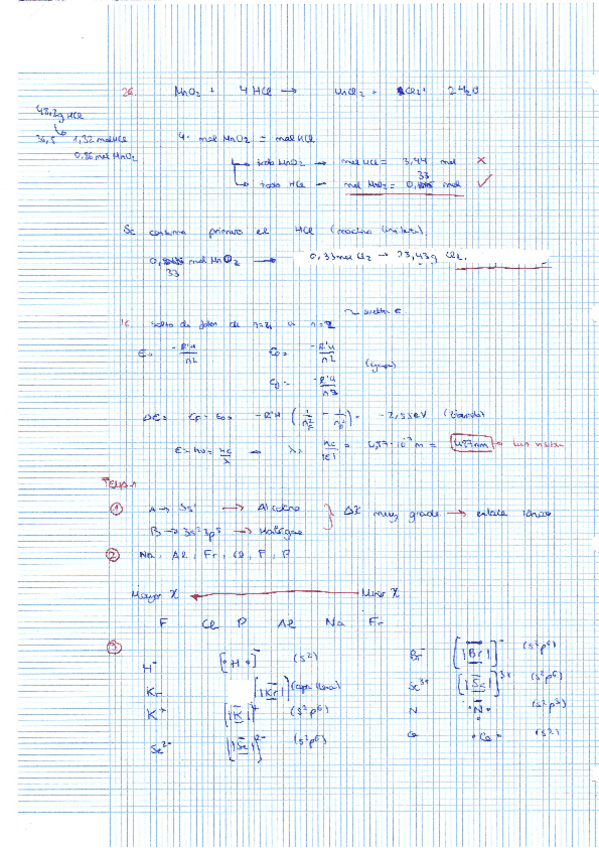 26. MnO₂ + 4 HCl → MnCl₂ + Cl₂ + 2H₂O
48,2g HCl
36,5 1,32 mol HCl
0,86 mol MnO₂
4. mol MnO₂ = mol HCl
todo MnO₂ → mol HCl = 3,44 mol ✗
todo HCl → mol MnO₂ = 0,33 mol ✓
Se consume primero el HCl (reactivo limitante).
0,33 mol MnO₂ → 0,33 mol Cl₂ → 23,43g Cl₂.
1c. Salto de fotón de n=4 a n=2 ~ suelta E
E = -R'H/n² E₀ = -R'H/n²
Ef = -R'H/n²
ΔE = Ef - E₀ = -R'H (1/n²f - 1/n²₀) = -2,55eV (liberado)
E = hν = hc/λ → λ = hc/|E| = 4,87·10⁻⁷m = 487nm
Tema 1
① A → 3s¹ → Alcalino } Δχ muy grande → enlace iónico
B → 3s²3p⁵ → Halógeno
② Na, Al, Fr, Cl, F, P
Mayor χ ← Menor χ
F Cl P Al Na Fr
③ H⁻ [•H•]⁻ (s²) Br⁻ [|Br|]⁻ (s²p⁶)
Kr [|Kr|] (capa llena) Sc³⁺ [|Sc|]³⁺ (s²p⁶)
K⁺ [|K|]⁺ (s²p⁶) N •N• (s²p³)
Se²⁻ [|Se|]²⁻ (s²p⁶) Ca •Ca• (s²)